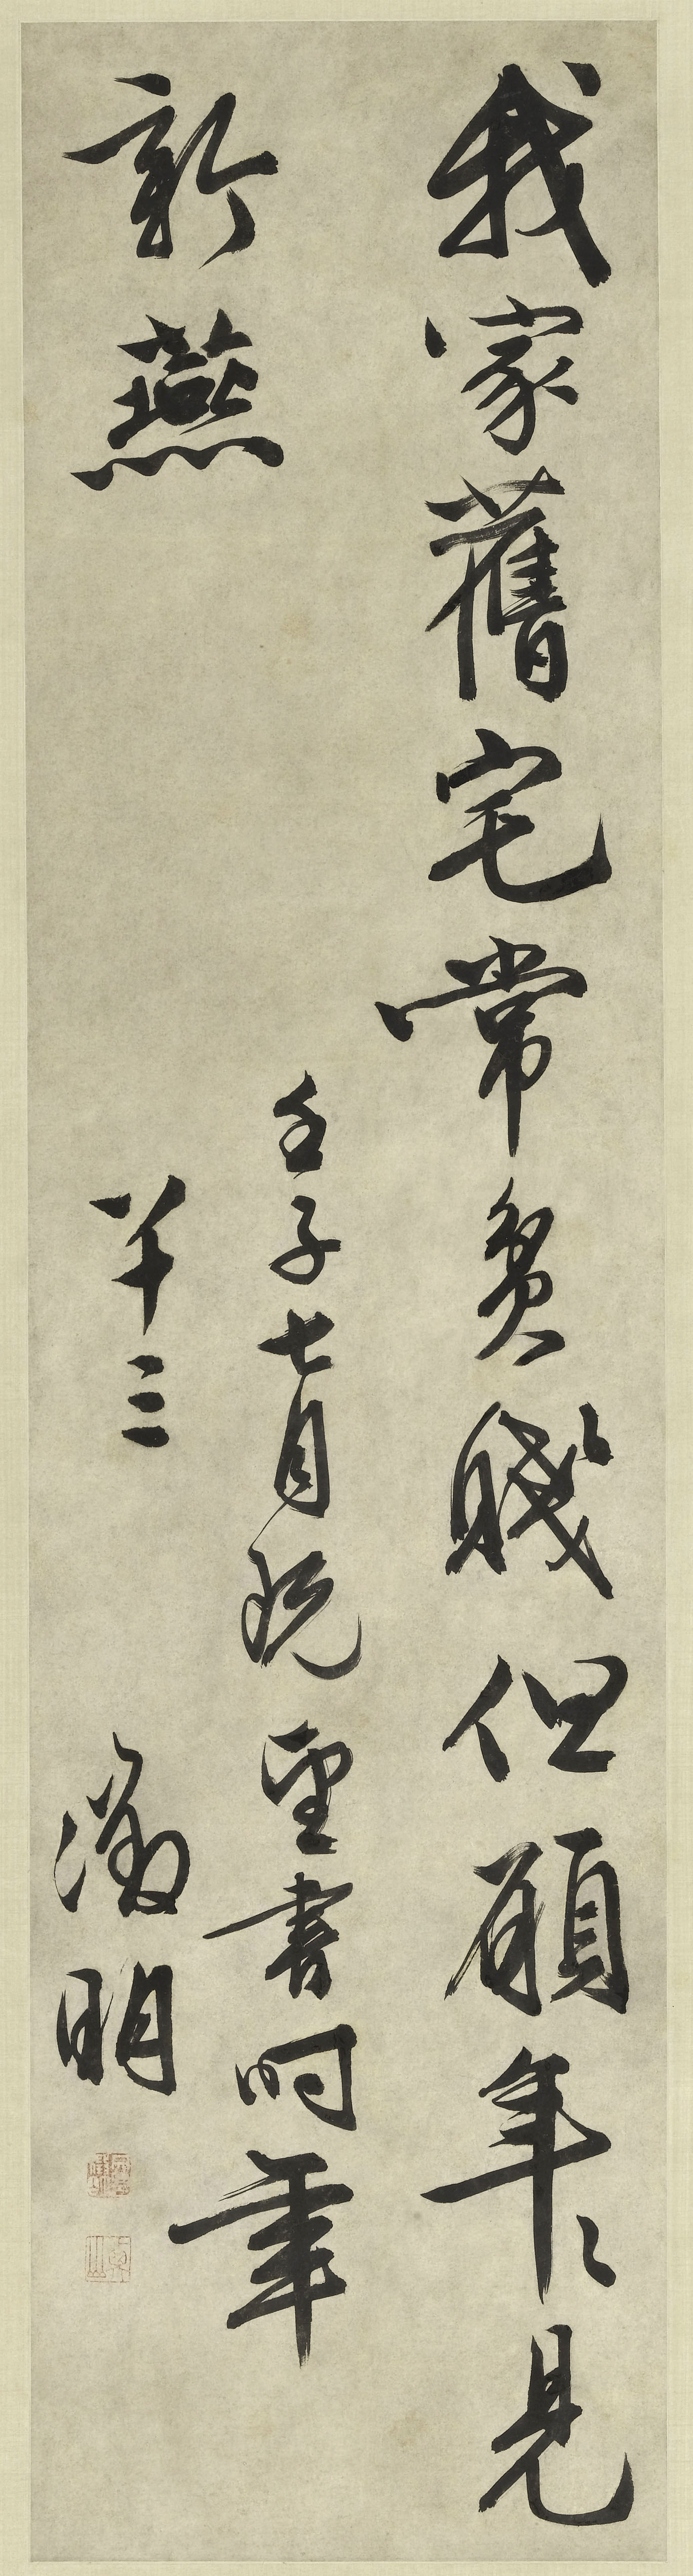 我家舊宅常貧賤但願年〻見
新燕
壬子七月既望書時年
八十三
徵明